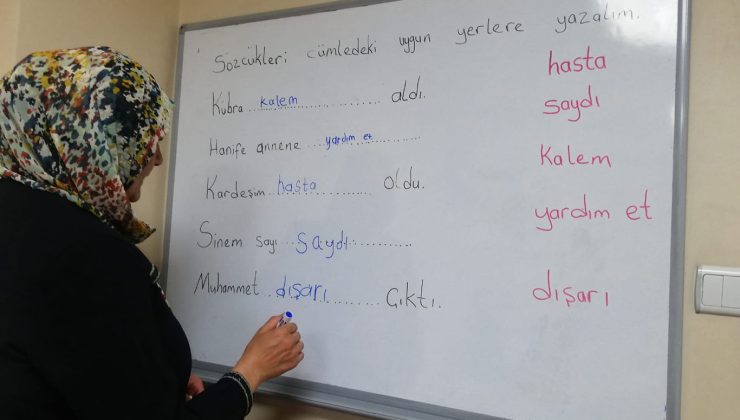 Sözcükleri cümledeki uygun yerlere yazalım.
hasta
Kübra kalem aldı.
saydı
Hanife annene yardım et
kalem
Kardeşim hasta oldu.
yardım et
Sinem sayı saydı
Muhammet dışarı çıktı.
dışarı